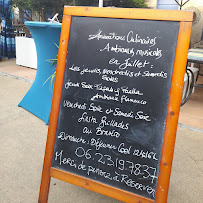 Animations Culinaires
Ambiances musicales
en Juillet:
Les jeudis, Vendredis et Samedis
Soirs
Jeudi Soir Tapas & Paella
Ambiance Flamenco
Vendredi Soir et Samedi Soir
Grillades
au Brasero
Dimanche Déjeuner
06.23.19.78.37
Merci de penser à Réserver